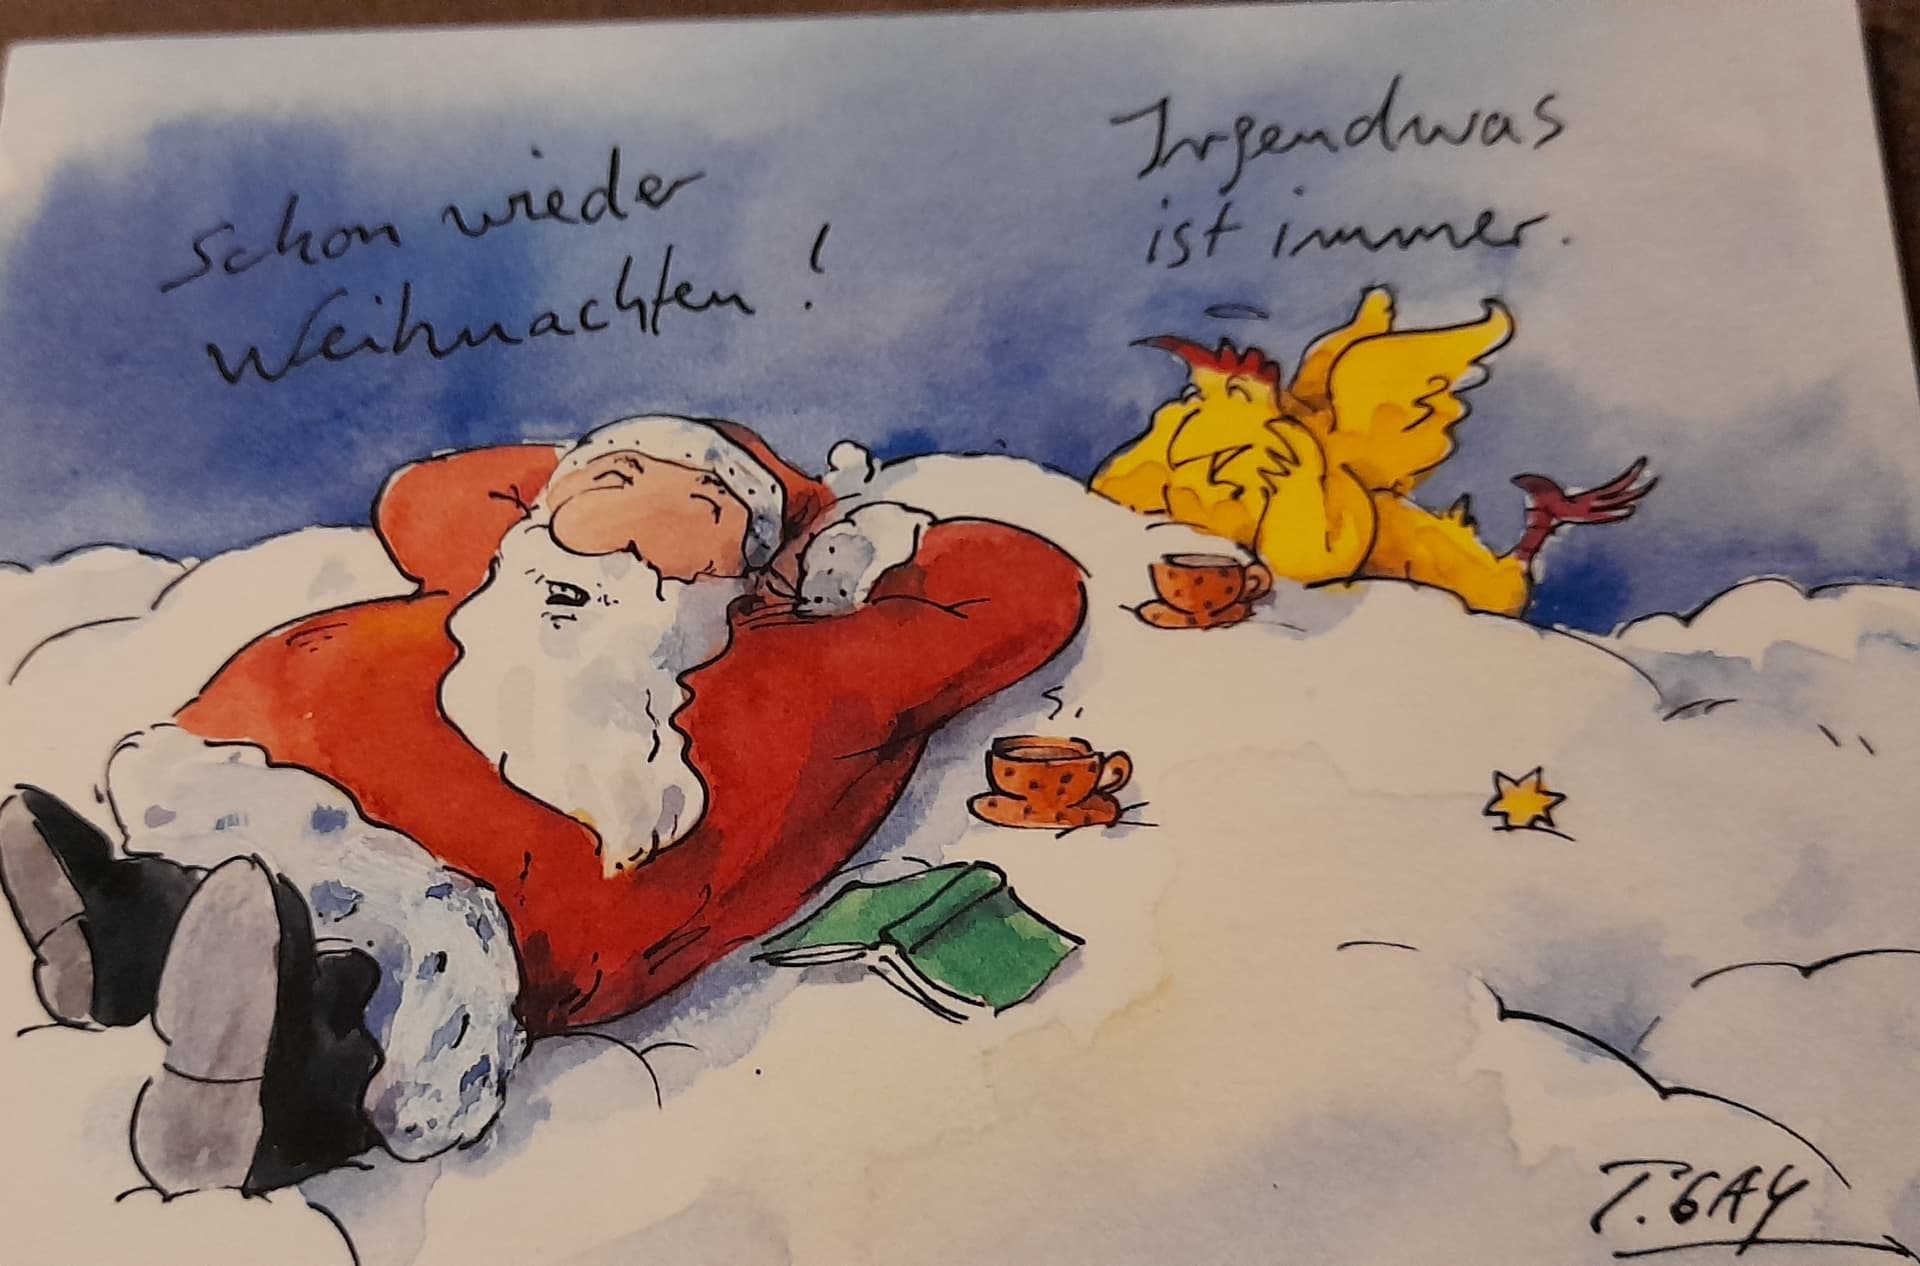 Schon wieder
Weihnachten!
Irgendwas
ist immer.
P. GAY